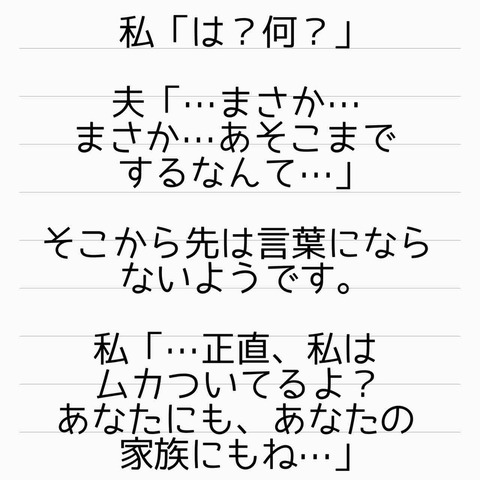 私「は？何？」
夫「…まさか…
まさか…あそこまで
するなんて…」
そこから先は言葉になら
ないようです。
私「…正直、私は
ムカついてるよ？
あなたにも、あなたの
家族にもね…」